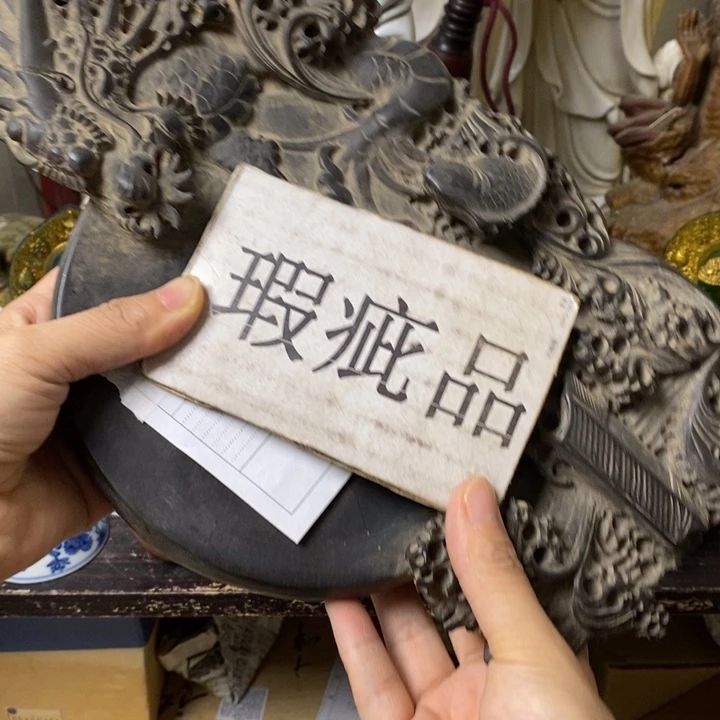 瑕疵品